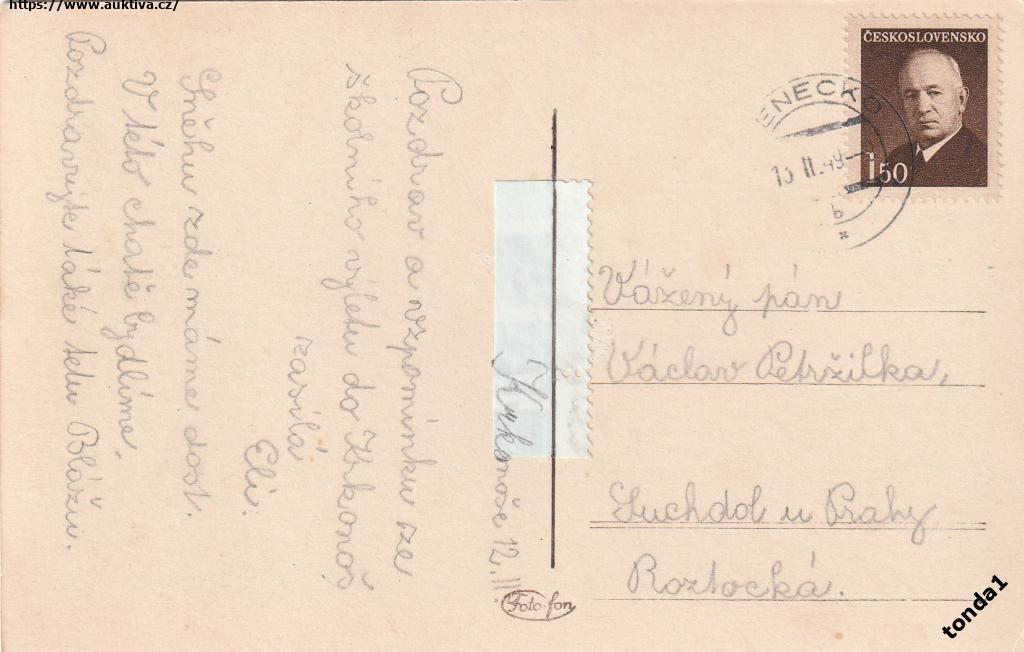 https://www.auktiva.cz/
ČESKOSLOVENSKO
150
BENECKO
13 II. 49
b
Krkonoše 12.II.
Pozdrav a vzpomínku ze
školního výletu do Krkonoš
zasílá
Eli.
Sněhu zde máme dost.
V této chatě bydlíme.
Pozdravujte také tetu Blážu.
Vážený pán
Václav Petržilka,
Suchdol u Prahy
Roztocká.
Foto-fon
tonda1